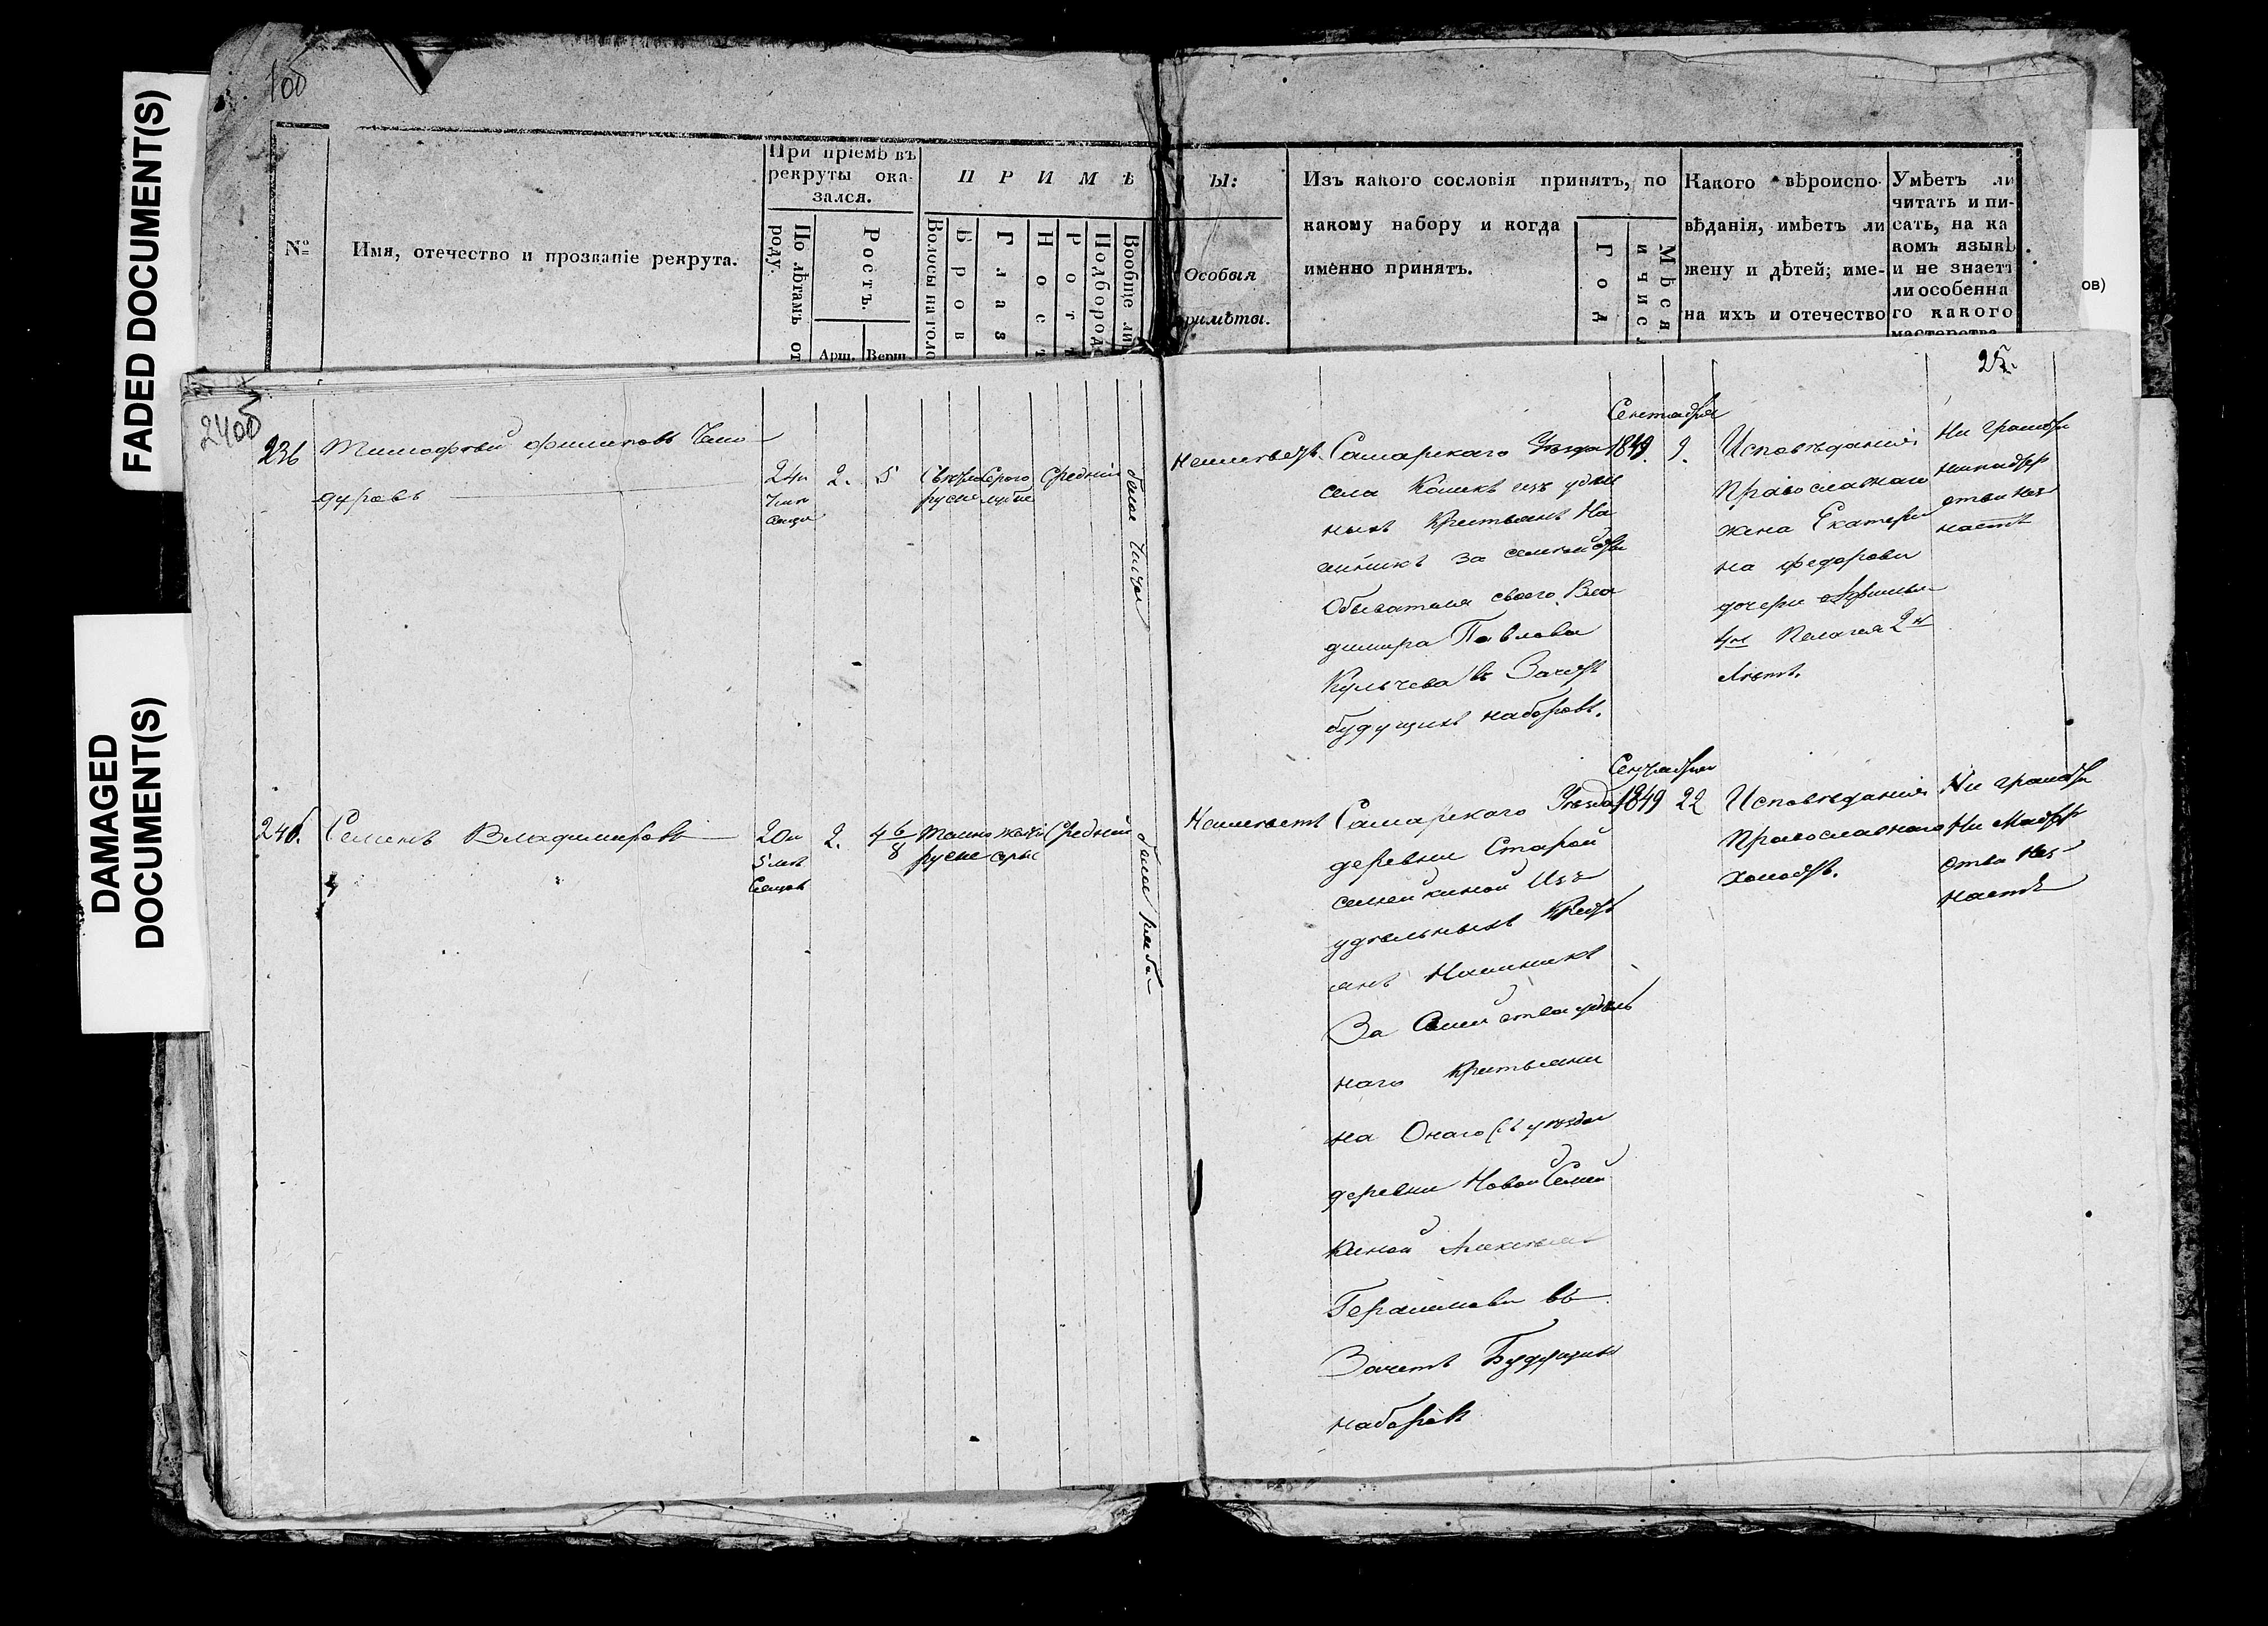 FADED DOCUMENT(S)
DAMAGED
DOCUMENT(S)
10об
№
Имя, отечество и прозваніе рекрута.
При пріемѣ въ
рекруты ока-
зался.
По лѣтамъ от
роду.
Ростъ.
Арш.
Верш.
ПРИМѢ
Волосы на голо
Бров
Глаз
Нос
Рот
Подбород
Вообще ли
Ы:
Особыя
римѣты.
Изъ какого сословія принятъ, по
какому набору и когда
именно принятъ.
Год
Мѣся.
и чис.
Какого вѣроиспо-
вѣданія, имѣетъ ли
жену и дѣтей; име-
на ихъ и отечество
Умѣетъ ли
читать и пи-
сать, на ка
комъ языкѣ
и не знаетъ
ли особенна
го какого
мастерства
ов)
24об
236
Тимофей Филиповъ
дуровъ
24
2.
5
Свѣтло
русые
Серого
Средній
белое чистое
Неимеетъ
Самарскаго Уѣзда
села Кошекъ изъ удѣль
ныхъ Крестьянъ На
емникъ за семейство
Обывателя своего Вла
димира Павлова
въ Зачетъ
будущихъ наборовъ.
Сентября
1849
9.
Исповѣданія
Православнаго
жена Екатери
на Федорова
дочери
Пелагея 2
Лѣтъ.
Ни грамоты
25.
240.
Семенъ Владимировъ
20
5 мѣ
сяцовъ
2.
4 6/8
Темно
русые
серые
Средній
белое рябое
Неимеетъ
Самарскаго Уѣзда
деревни Старой
семейкиной Изъ
удѣльныхъ Крестъ
янъ Наемникъ
За Семейства удѣль
наго Крестьяни
на Онаго съ уѣзда
деревни Новой Семей
киной Алексея
Герасимова въ
Зачетъ Будущихъ
наборовъ
Сентября
1849
22
Исповѣданія
Православнаго
холостъ.
Ни грамоты
Ни Мастер
ства Нез
наетъ